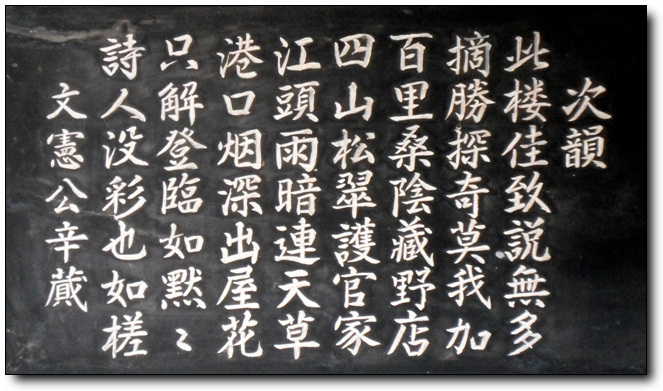 次韻
此楼佳致説無多
摘勝探奇莫我加
百里桑陰藏野店
四山松翠護官家
江頭雨暗連天草
港口烟深出屋花
只解登臨如黙〻
詩人没彩也如槎
文憲公辛蕆